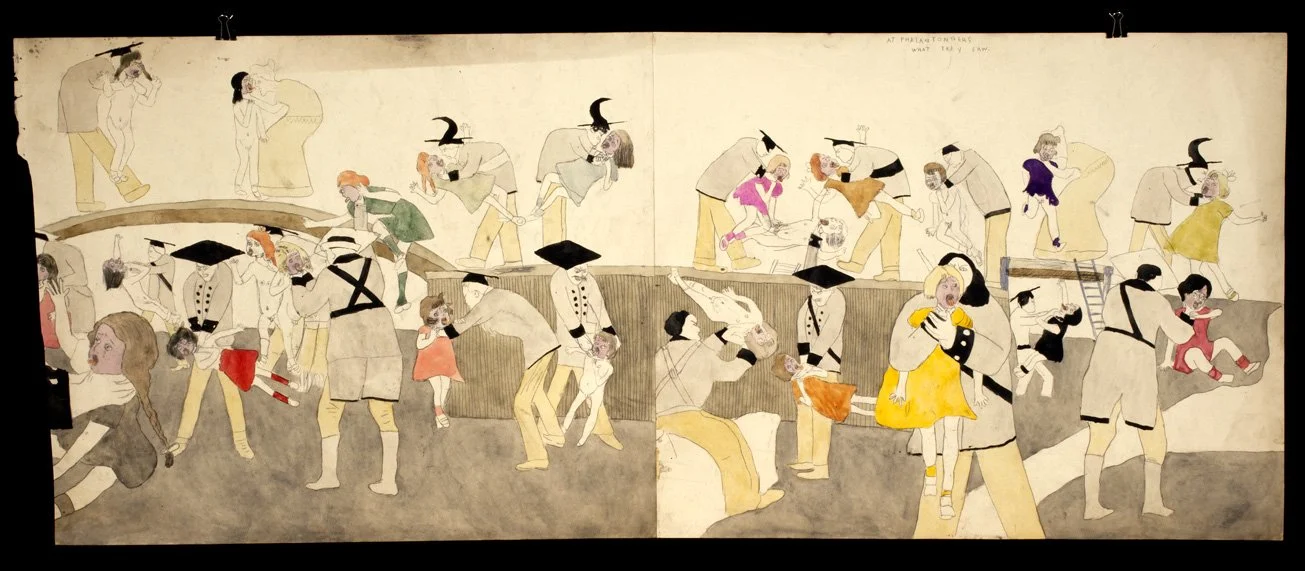 AT PHELANTONBERG
WHAT THEY SAW.